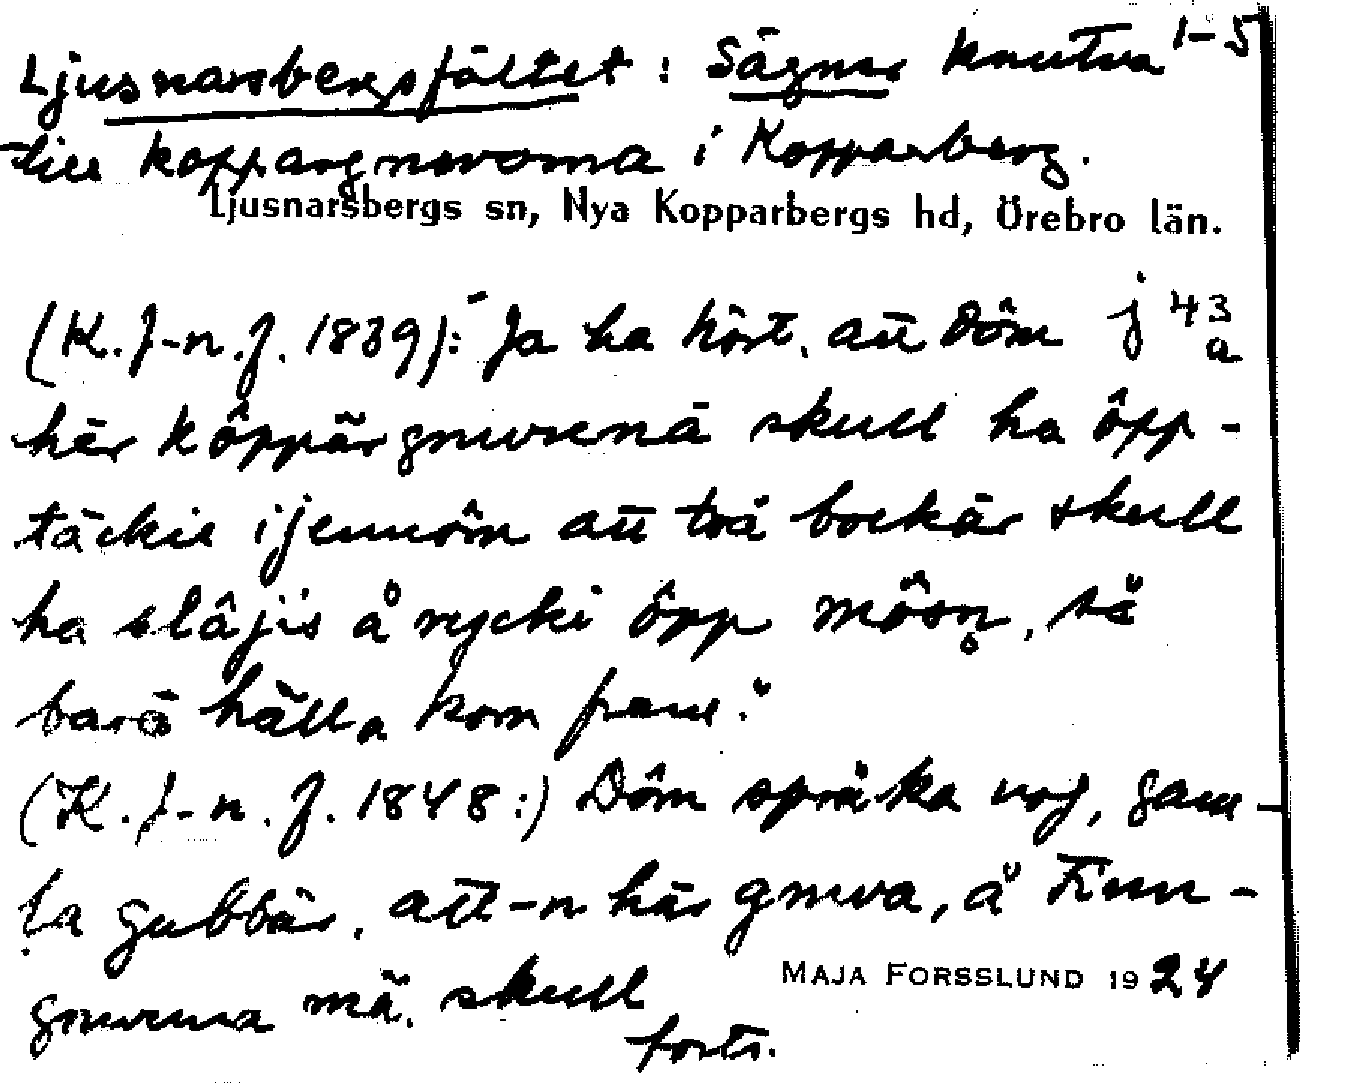 Ljusnarsbergsfältet: Sägner knutna 1-5
till koppargruvorna i Kopparberg.
Ljusnarsbergs sn, Nya Kopparbergs hd, Örebro län.
(K. J-n. f. 1839): Ja ha hört, att dôm j 43 a
här kôppärgruvenä skull ha ôpp-
täckis ijennôm att två bockär skull
ha slâjis å rycki ôpp môsn, så
barä hälla kom fram."
(K. J-n. f. 1848:) Dôm språka voj, gam-
la gubbär, att-n här gruva, å Finn-
gruvena mä, skull
MAJA FORSSLUND 1924
forts.